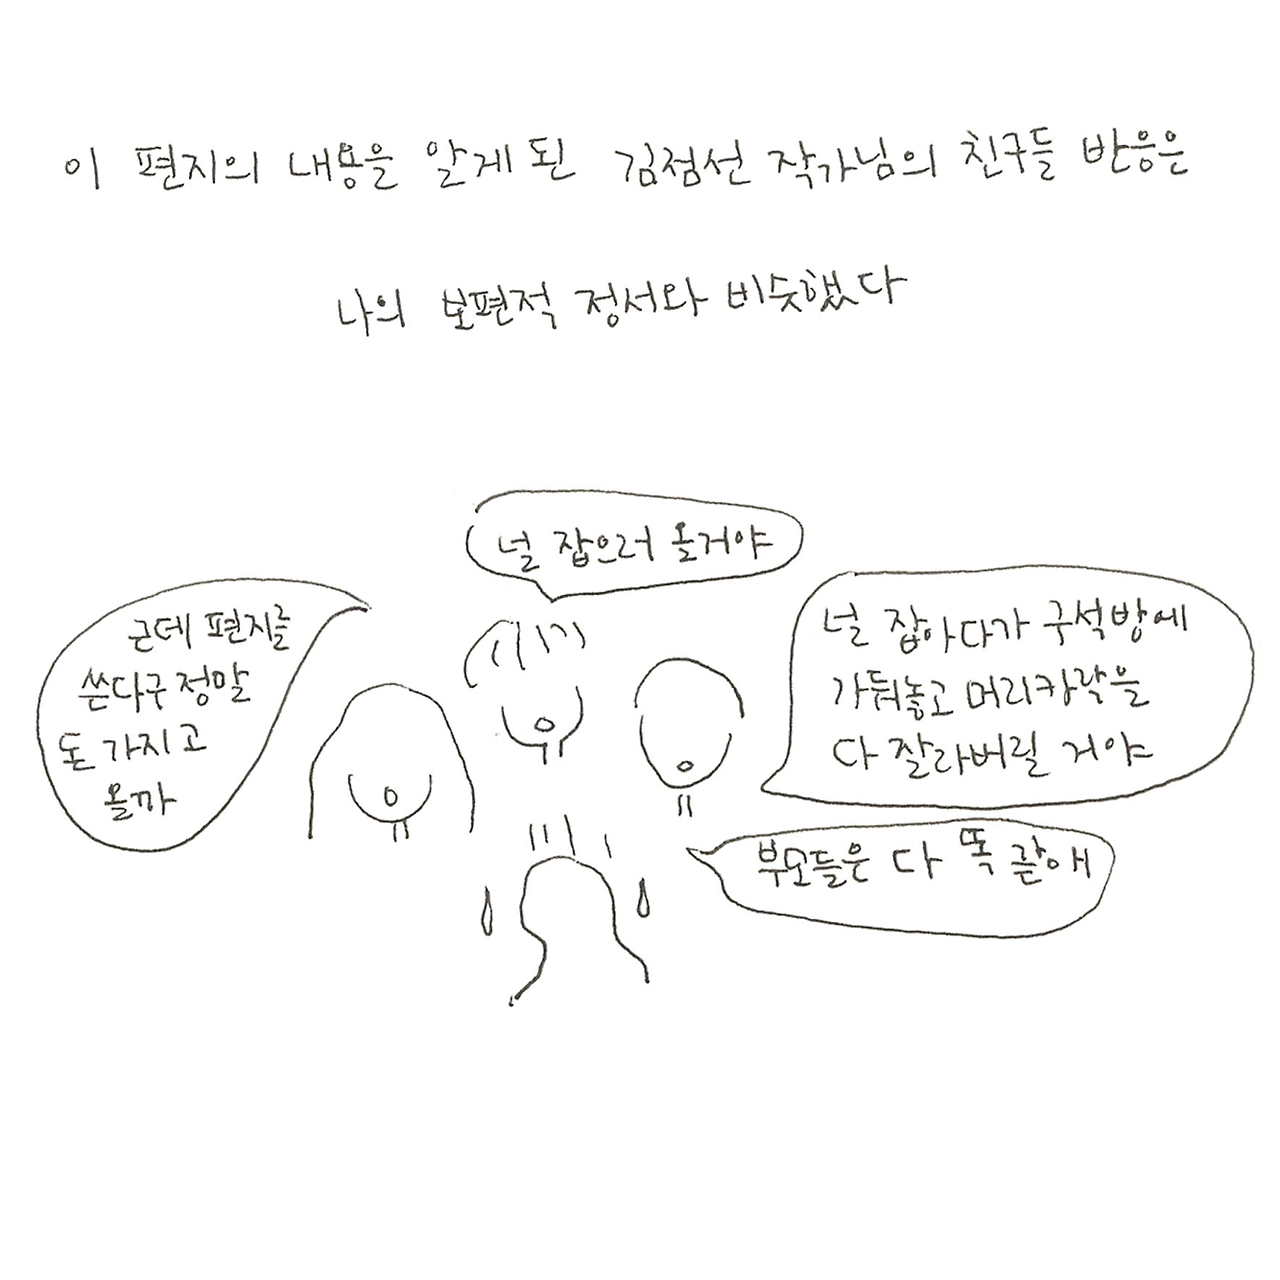 이 편지의 내용을 알게 된 김점선 작가님의 친구들 반응은
나의 보편적 정서와 비슷했다
널 잡으러 올거야
근데 편지를
쓴다구 정말
돈 가지고
올까
널 잡아다가 구석방에
가둬놓고 머리카락을
다 잘라버릴 거야
부모들은 다 똑같애